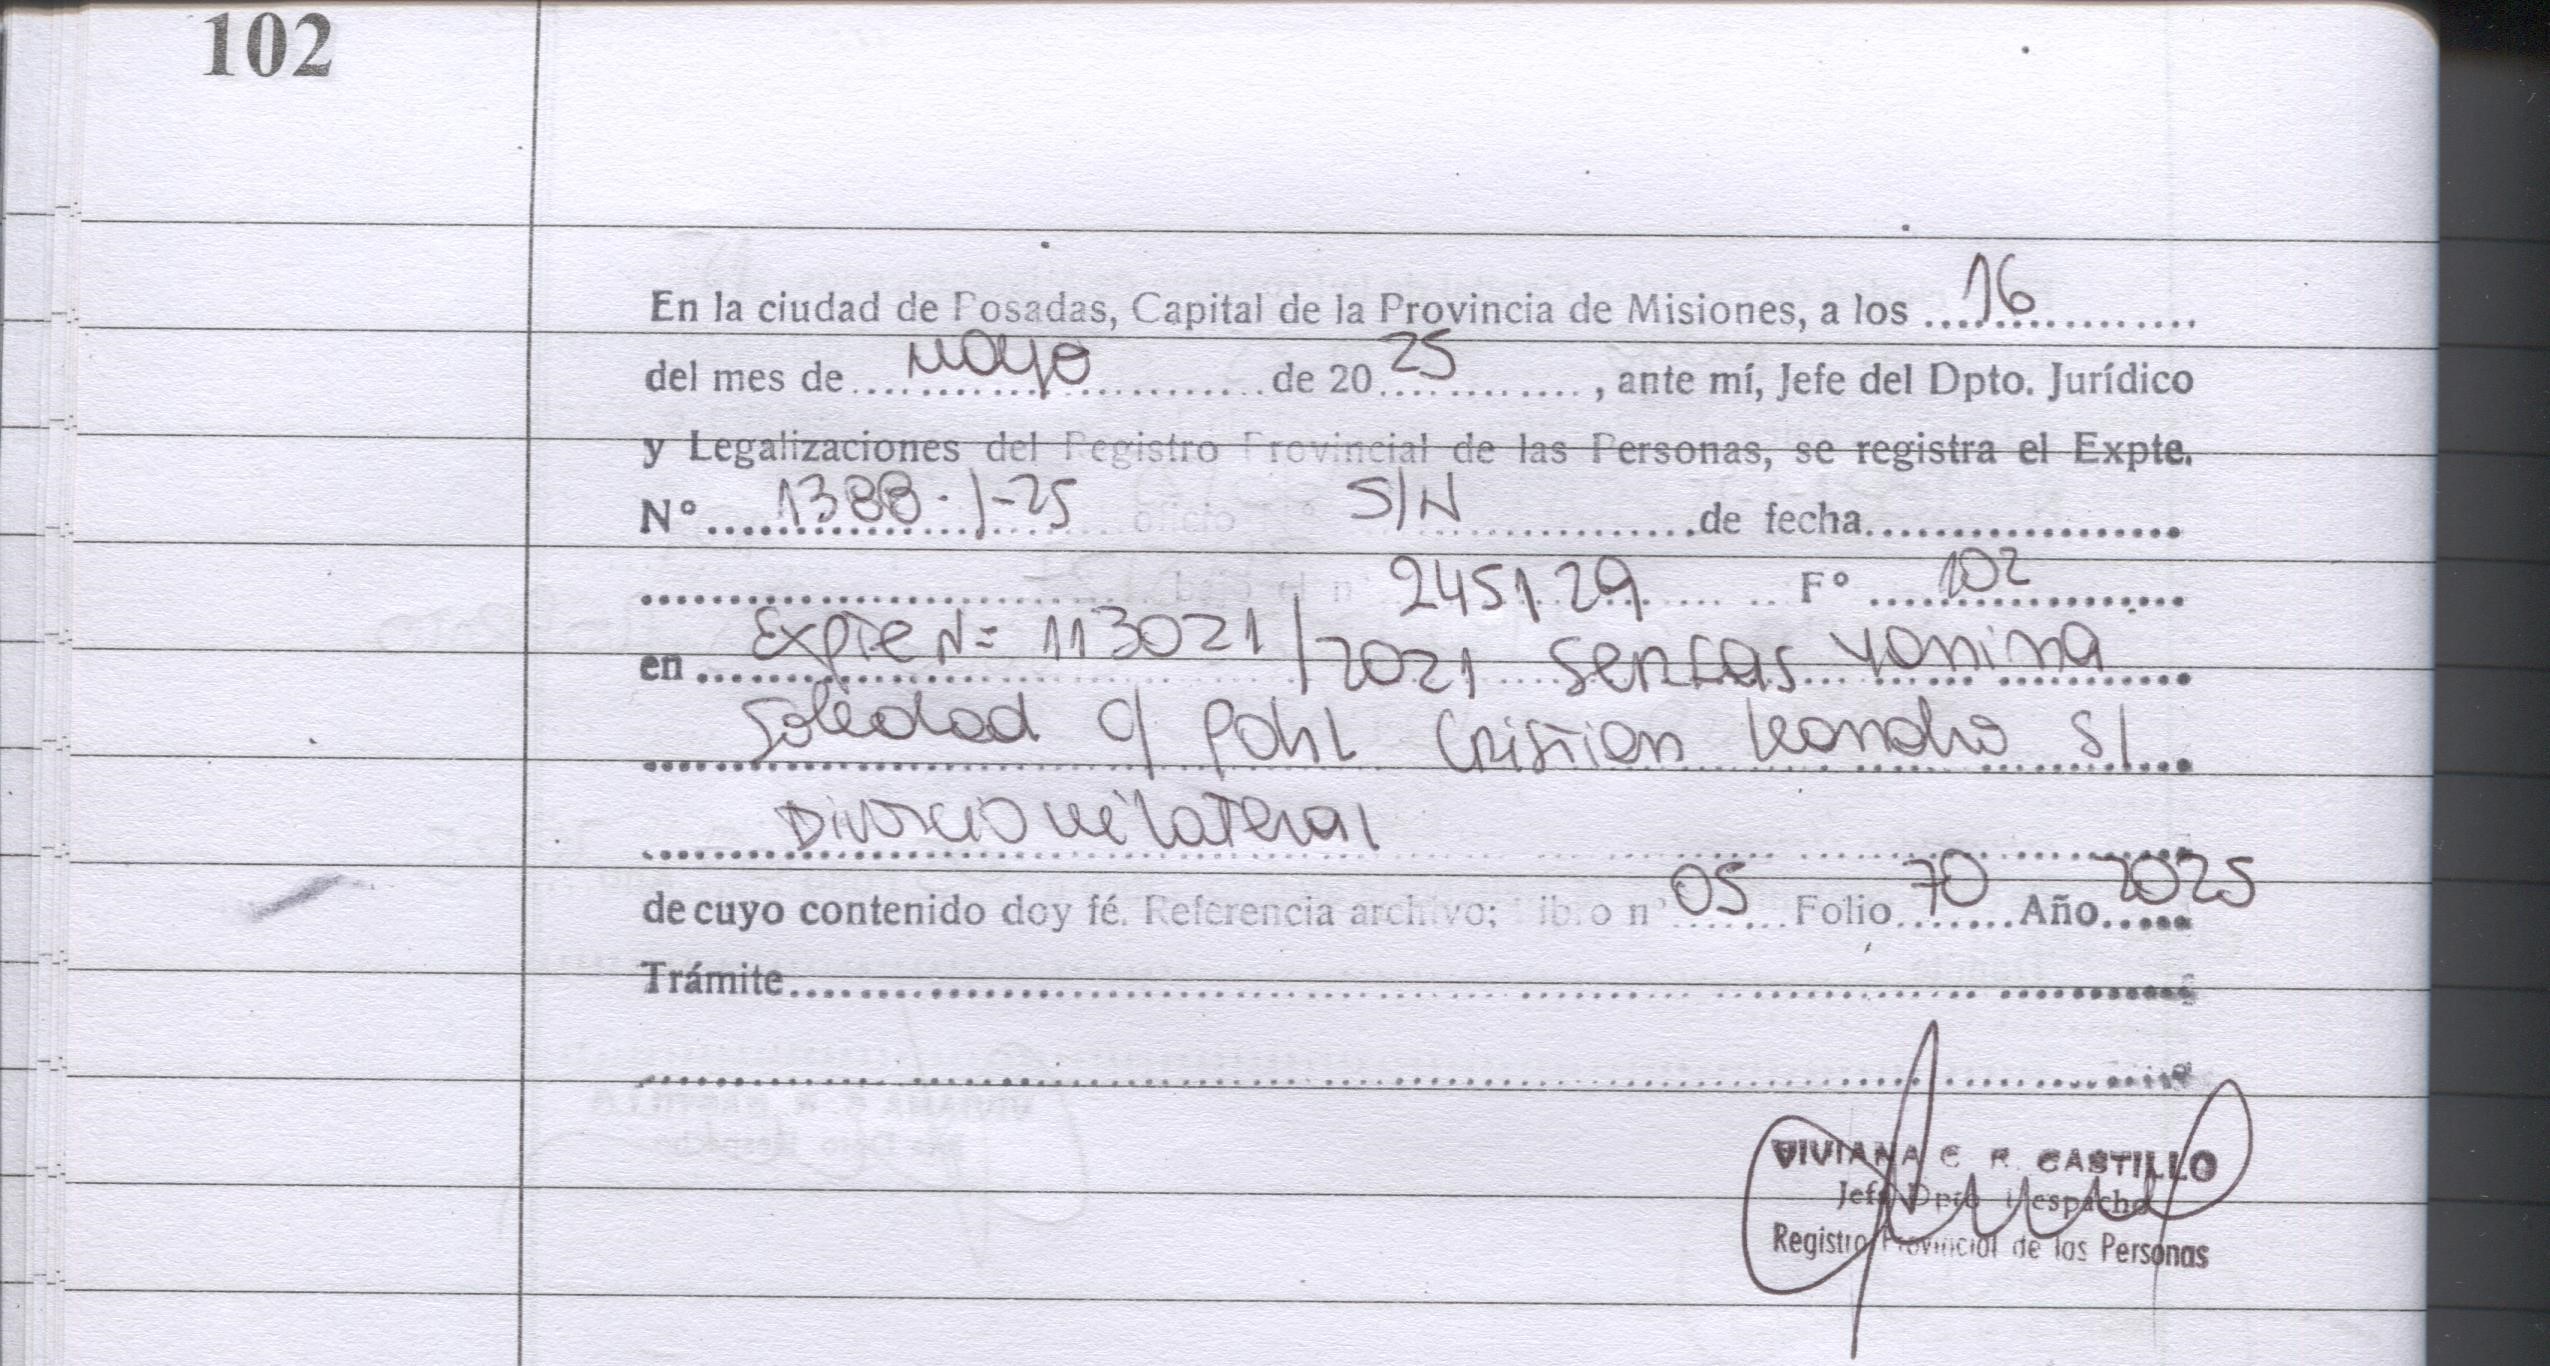 102
En la ciudad de Posadas, Capital de la Provincia de Misiones, a los 16
del mes de mayo de 20 25, ante mí, Jefe del Dpto. Jurídico
y Legalizaciones del Registro Provincial de las Personas, se registra el Expte.
Nº 1388-J-25 oficio nº S/N de fecha
bajo el nº 245129 Fº 102
en Expte Nº 113021/2021 Yanina
Soledad c/ Pohl Cristian Leandro S/
Divorcio unilateral
de cuyo contenido doy fé. Referencia archivo; Libro nº 05 Folio 70 Año 2025
Trámite
VIVIANA C. R. CASTILLO
Jefe Dpto Despacho
Registro Provincial de las Personas